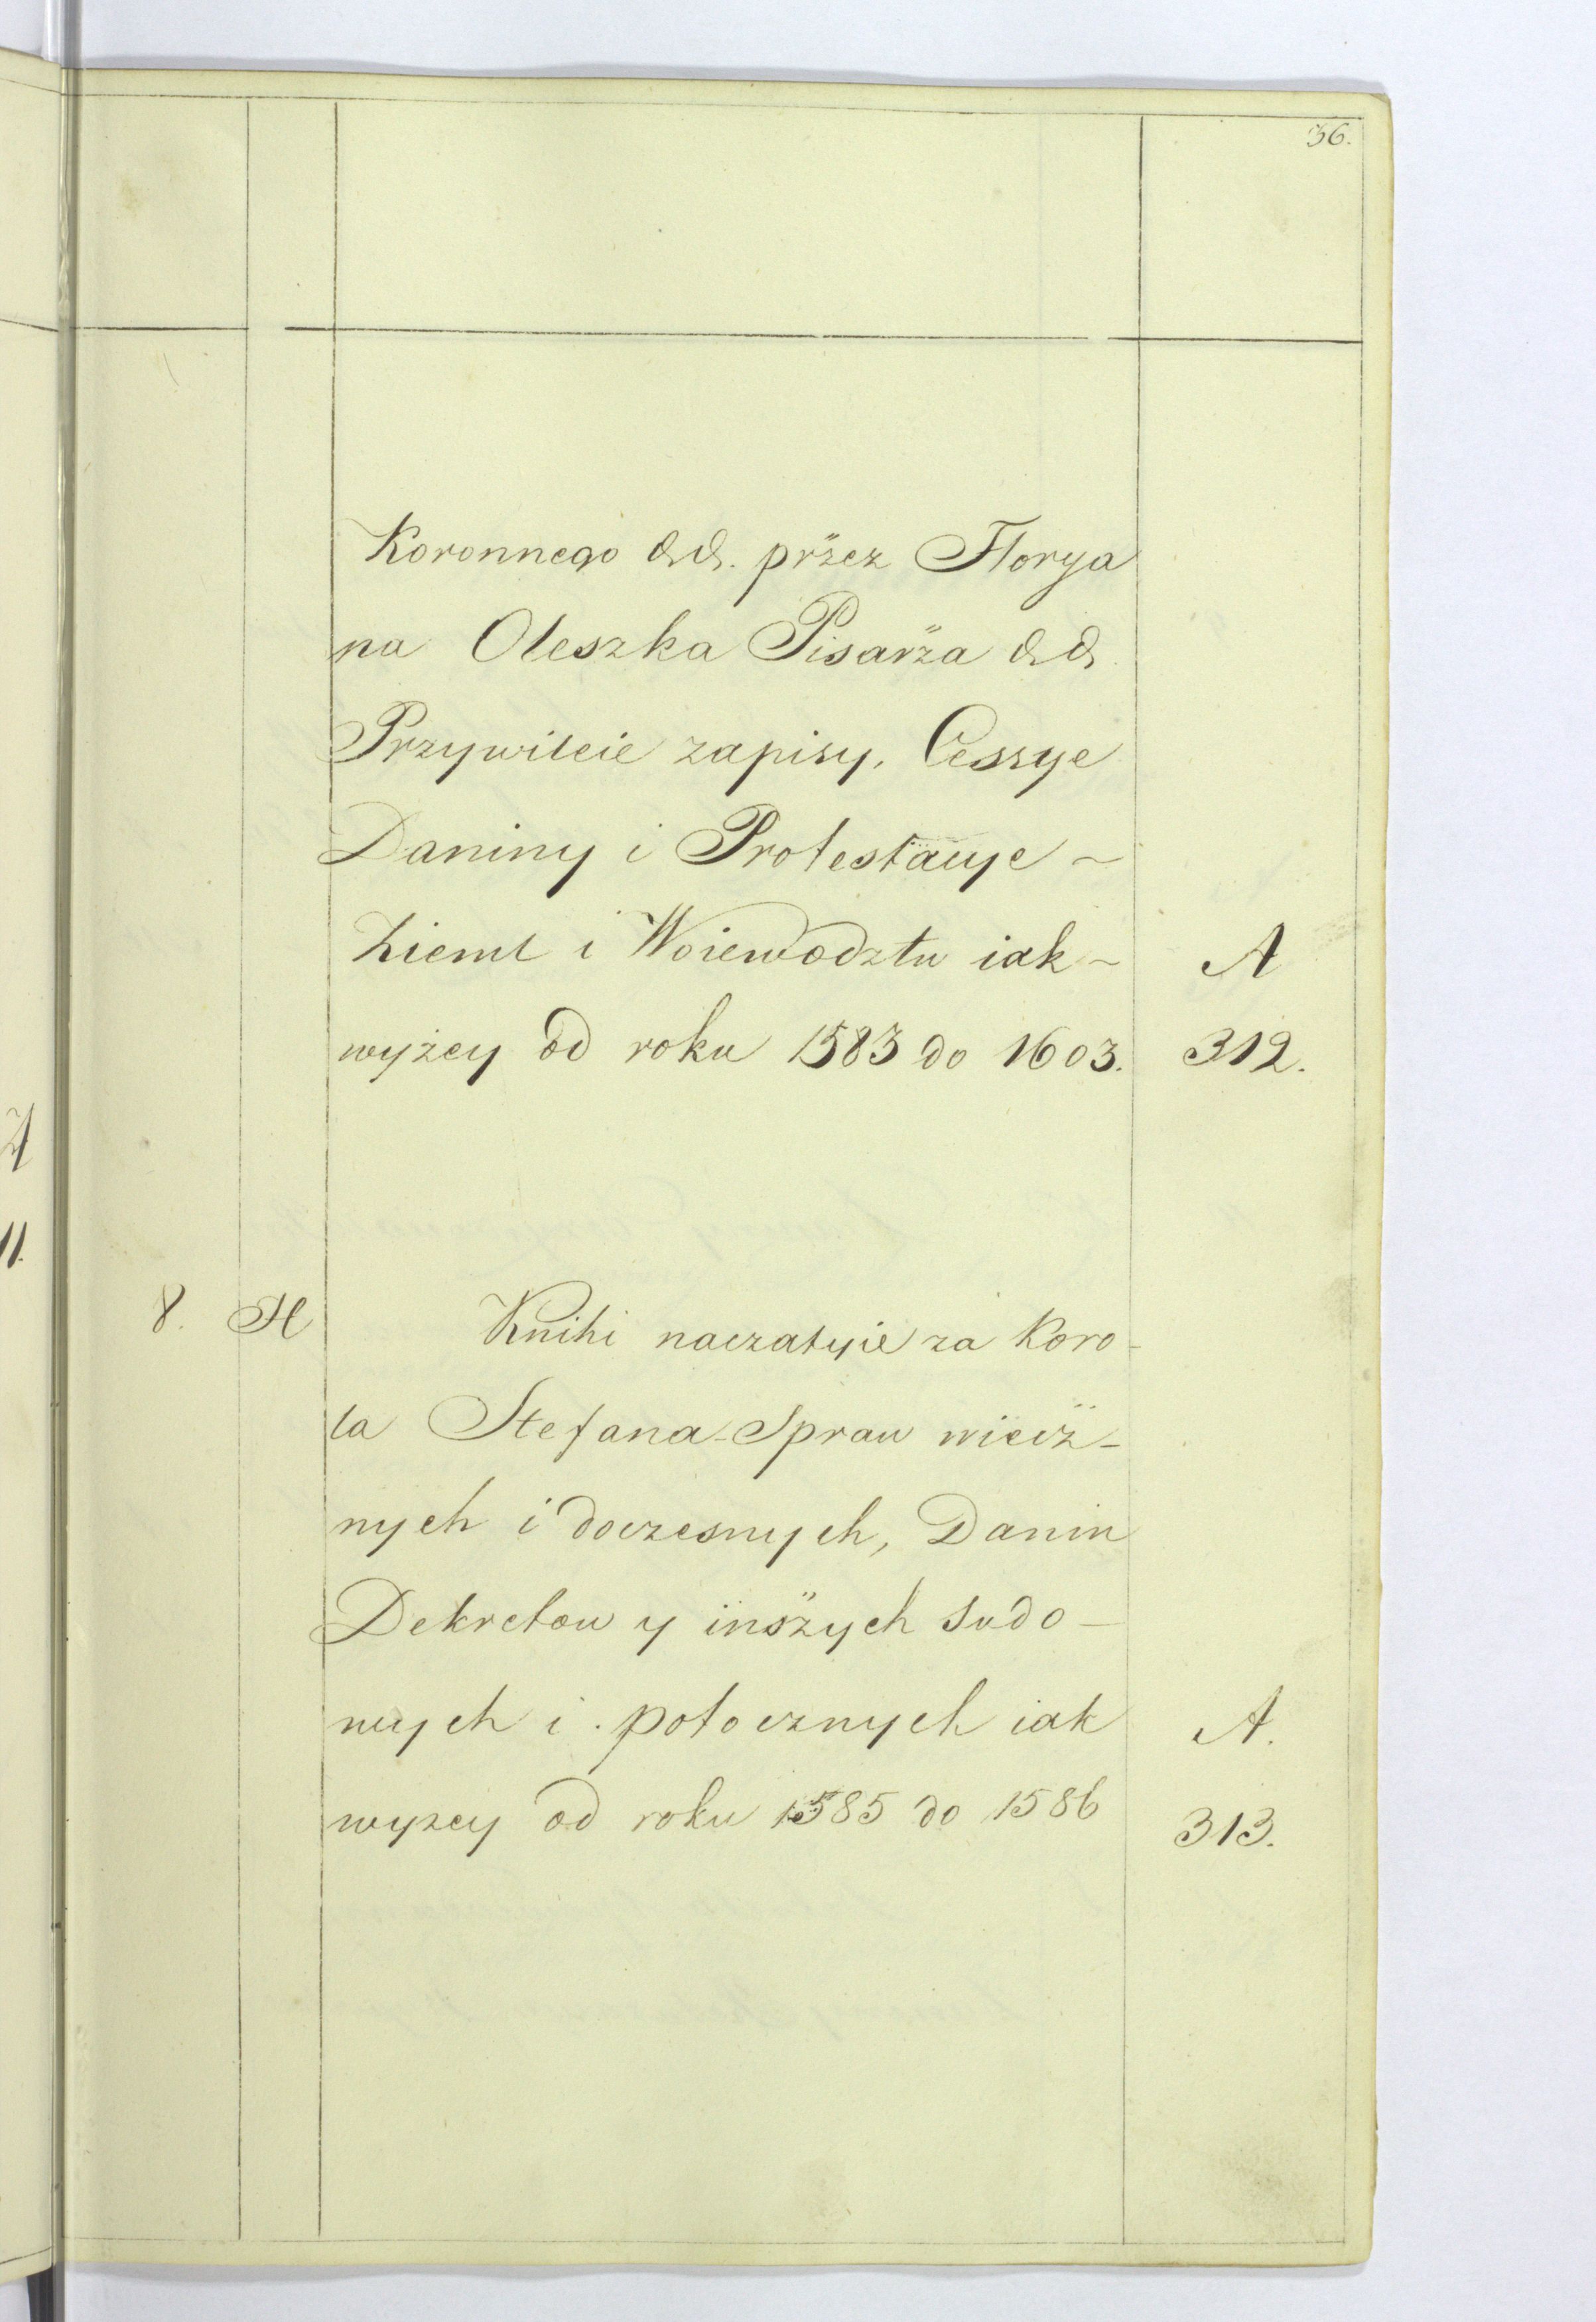 36.
Koronnego &&. przez Florya
na Oleszka Pisarża &&
Przywileie zapisy, Cessye
Daniny i Protestacye ~
Ziemi i Woiewodztw iak ~ A
wyżey od roku 1583 do 1603. 312.
8. H Knihi naczatyie za Koro-
la Stefana - Spraw wiecz-
nych i doczesnych, Danin
Dekretow y inszych sudo-
wych i potocznych iak A.
wyzey od roku 1585 do 1586 313.